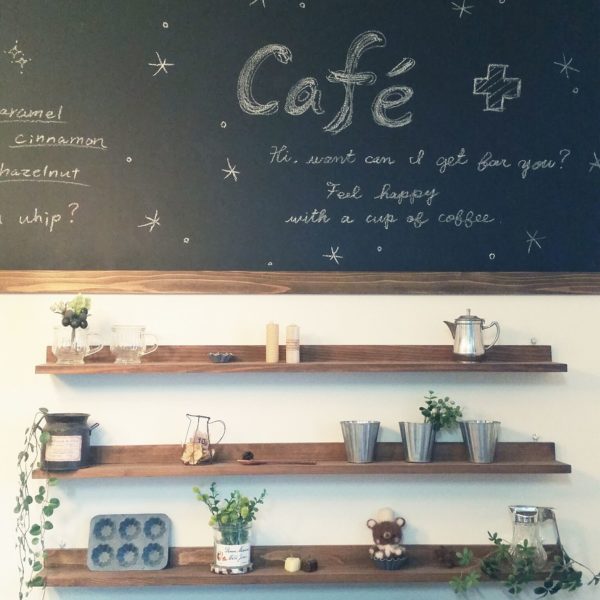 Café
aramel
cinnamon
hazelnut
whip?
Hi, want can I get for you?
Feel happy
with a cup of coffee.